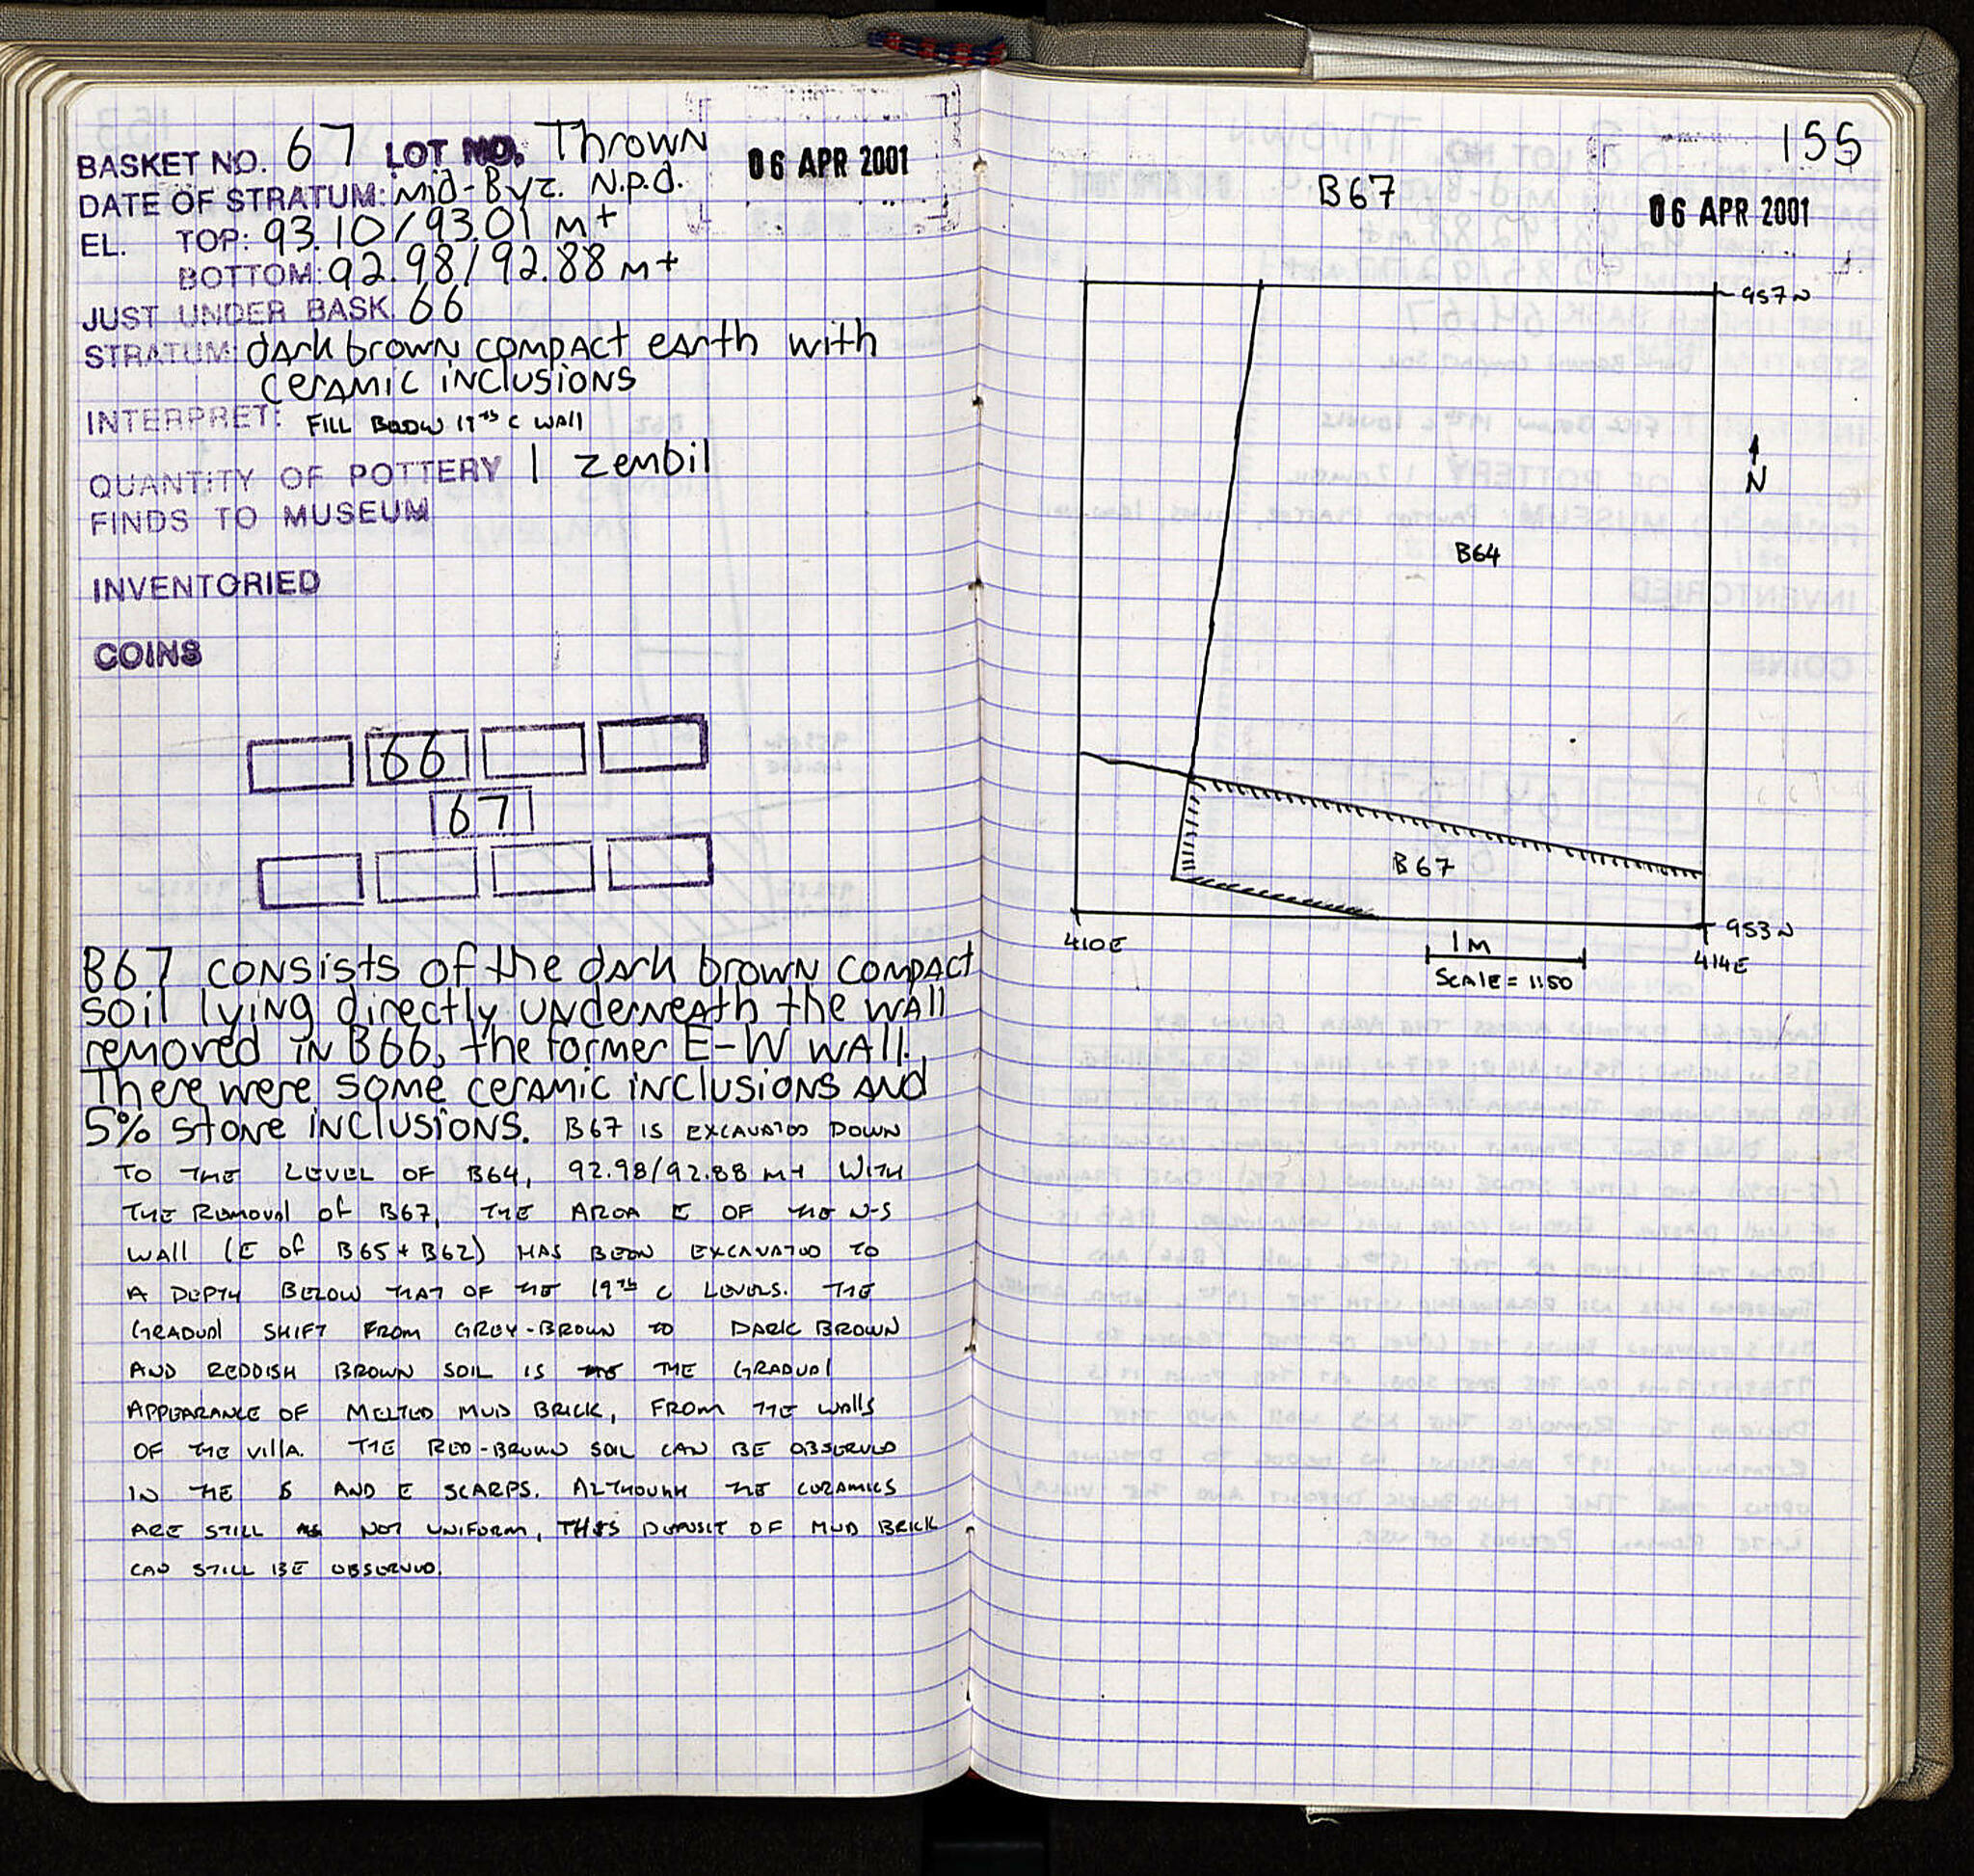 BASKET NO. 67 LOT NO. Thrown 06 APR 2001
DATE OF STRATUM: Mid-Byz. N.p.d.
EL. TOP: 93.10/93.01 m+
BOTTOM: 92.98/92.88 m+
JUST UNDER BASK. 66
STRATUM: dark brown compact earth with
ceramic inclusions
INTERPRET: FILL BELOW 19th C WALL
QUANTITY OF POTTERY 1 zembil
FINDS TO MUSEUM
INVENTORIED
COINS
66
67
B67 consists of the dark brown compact
soil lying directly underneath the wall
removed in B66, the former E-W wall.
There were some ceramic inclusions and
5% stone inclusions. B67 IS EXCAVATED DOWN
TO THE LEVEL OF B64, 92.98/92.88 M+ WITH
THE REMOVAL OF B67, THE AREA E OF THE N-S
WALL (E OF B65 + B62) HAS BEEN EXCAVATED TO
A DEPTH BELOW THAT OF THE 19th C LEVELS. THE
GRADUAL SHIFT FROM GREY-BROWN TO DARK BROWN
AND REDDISH BROWN SOIL IS THE GRADUAL
APPEARANCE OF MELTED MUD BRICK, FROM THE WALLS
OF THE VILLA. THE RED-BROWN SOIL CAN BE OBSERVED
IN THE S AND E SCARPS. ALTHOUGH THE CERAMICS
ARE STILL NOT UNIFORM, THIS DEPOSIT OF MUD BRICK
CAN STILL BE OBSERVED.
155
B67
06 APR 2001
957N
N
B64
B67
953N
410E
414E
1M
SCALE = 1:50